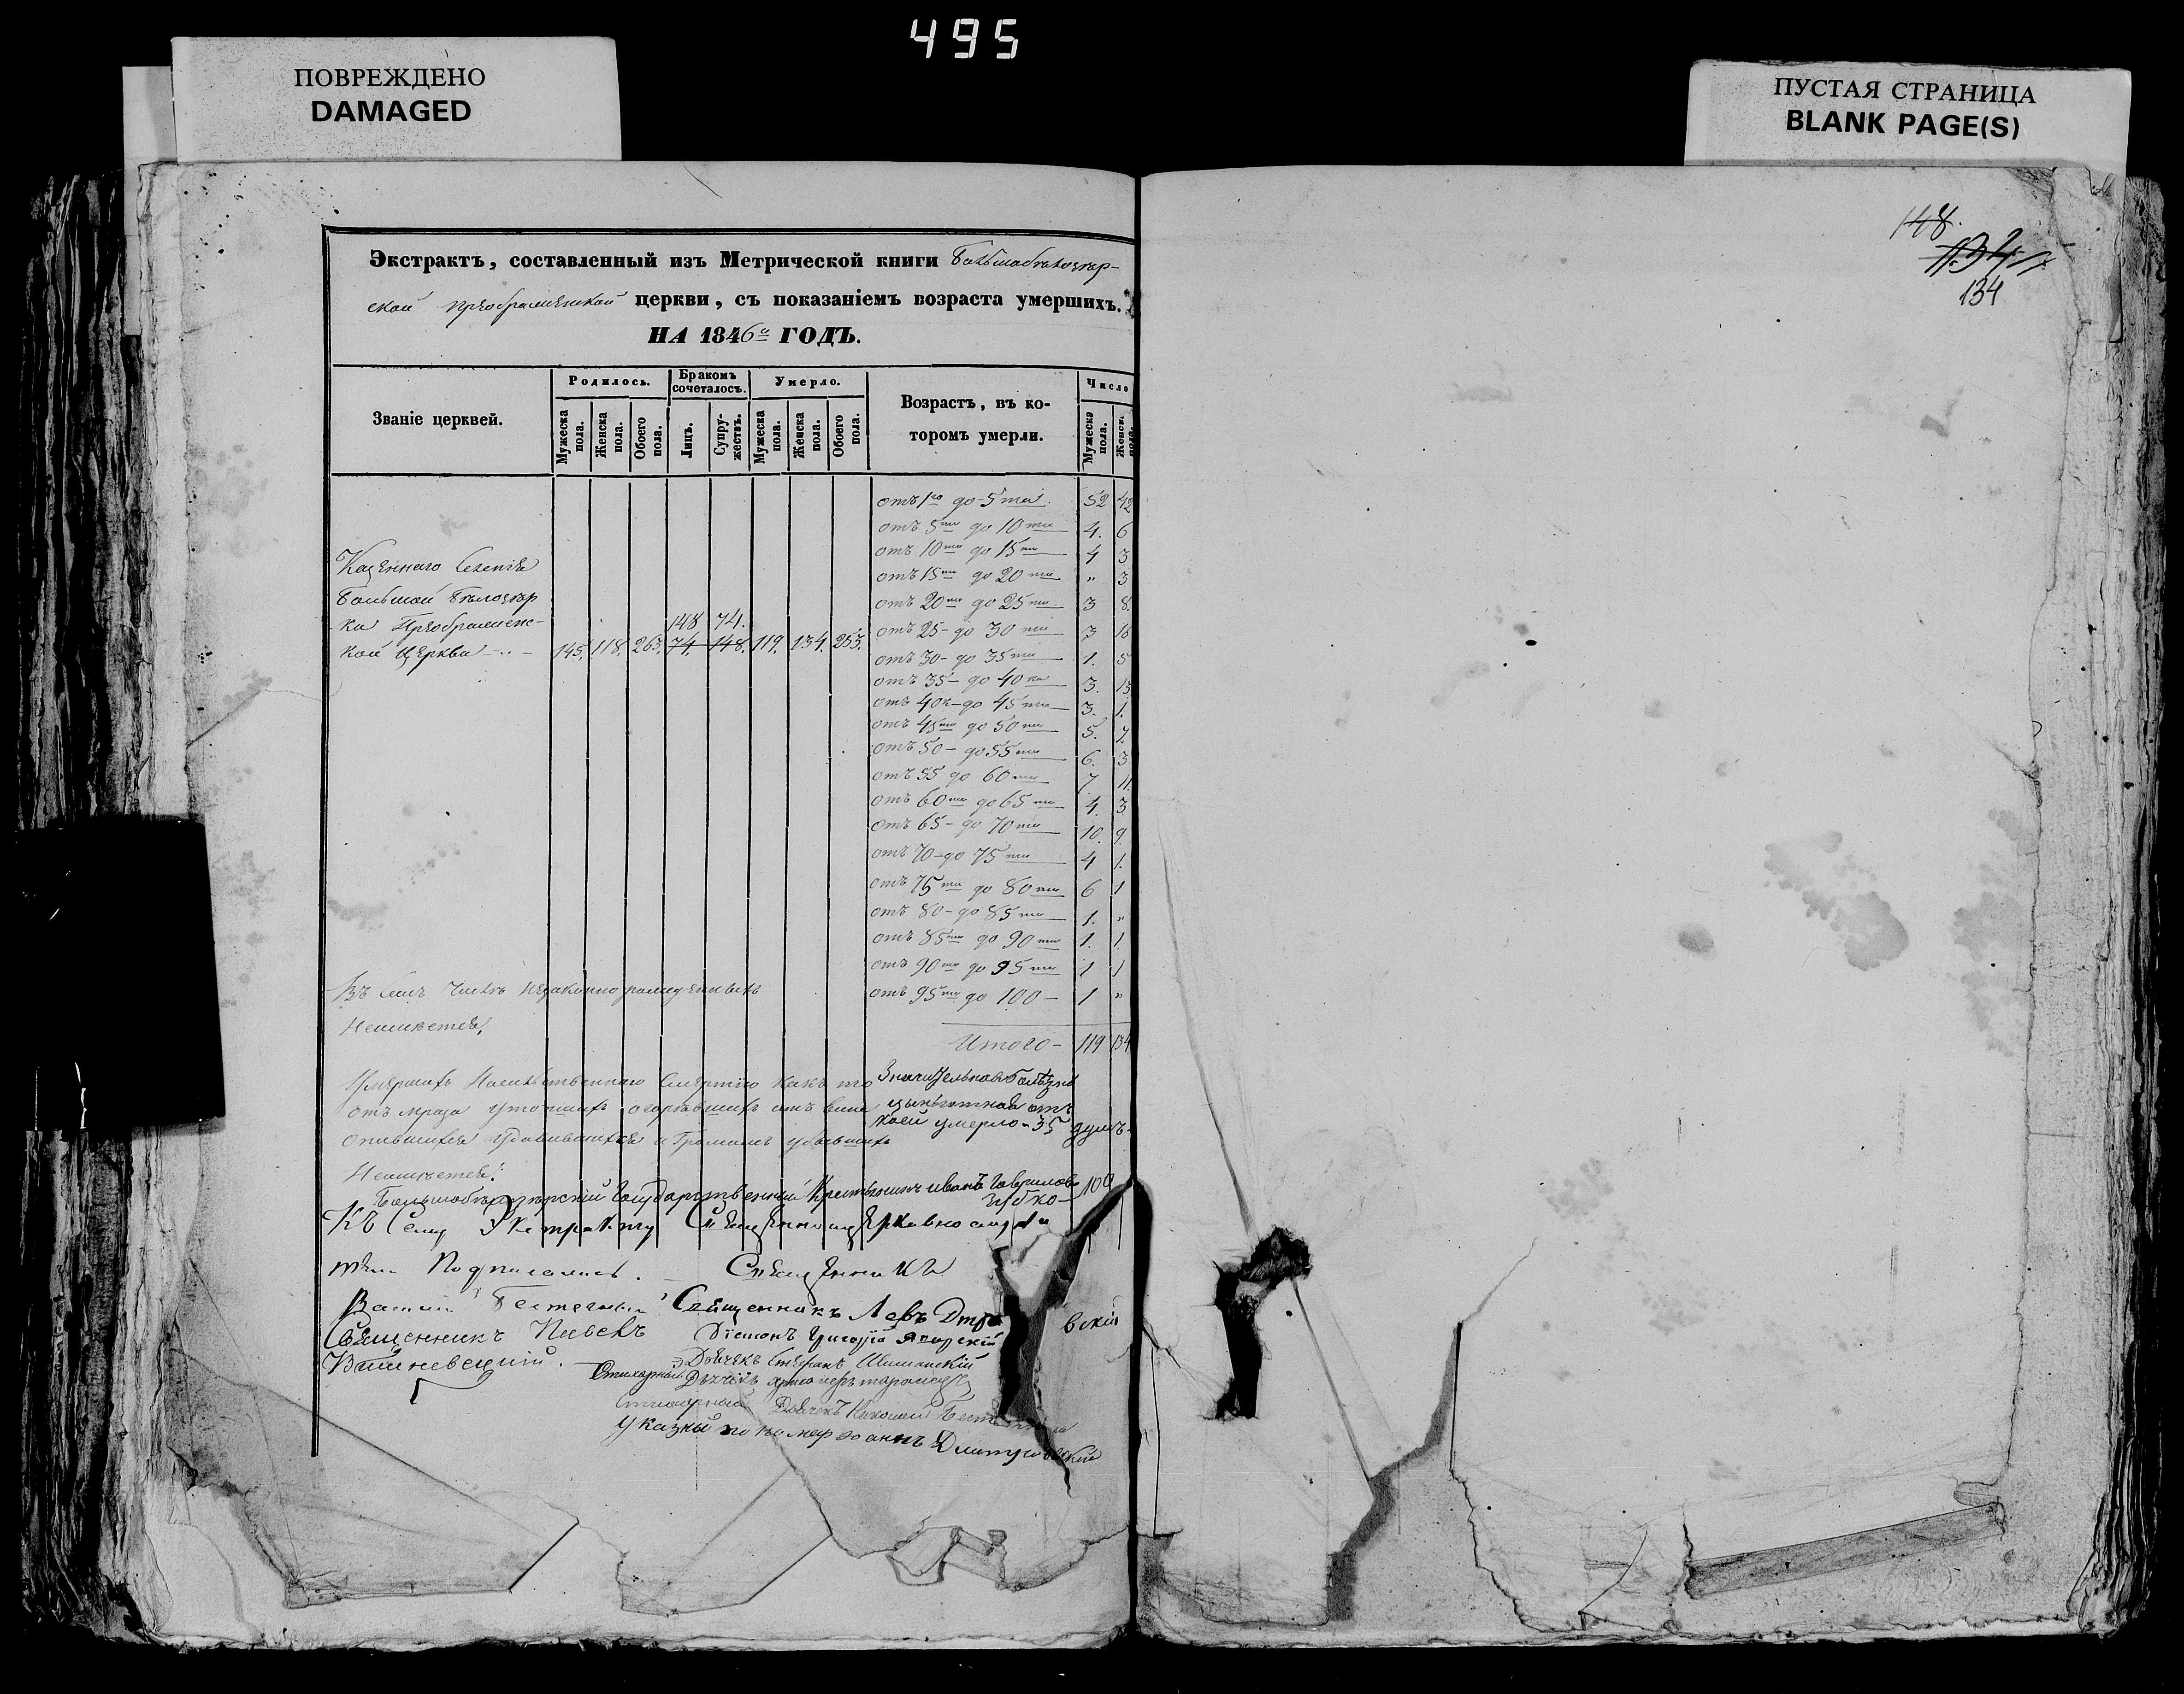 495
ПОВРЕЖДЕНО
DAMAGED
ПУСТАЯ СТРАНИЦА
BLANK PAGE(S)
148.
134
134
Экстрактъ, составленный изъ Метрической книги Большобѣлозер-
ской Преображенской церкви, съ показаніемъ возраста умершихъ.
НА 1846й ГОДЪ.
Званіе церквей.
Родилось.
Бракомъ сочеталось.
Умерло.
Возрастъ, въ которомъ умерли.
Число
Мужеска пола.
Женска пола.
Обоего пола.
Лицъ.
Супружествъ.
Мужеска пола.
Женска пола.
Обоего пола.
Мужеска пола.
Женск. пола.
Казеннаго Селенія
Большой Бѣлозер
ки Преображенс-
кой Церкви
148 74.
145. 118. 263. 74. 148. 119. 134. 253.
отъ 1го до 5ти 52 42
отъ 5ти до 10ти 4. 6
отъ 10ти до 15ти 4 3
отъ 15ти до 20ти " 3
отъ 20ти до 25ти 3 8.
отъ 25- до 30ти 3 16
отъ 30- до 35ти 1. 5
отъ 35- до 40ка 3. 13
отъ 40к- до 45ти 3. 1.
отъ 45ти до 50ти 5. 7.
отъ 50- до 55ти 6. 3
отъ 55 до 60ти 7 11.
отъ 60ти до 65ти 4. 3
отъ 65- до 70ти 10. 9.
отъ 70- до 75ти 4 1.
отъ 75ти до 80ти 6 1
отъ 80- до 85ти 1. "
отъ 85ти до 90ти 1. 1
отъ 90ти до 95ти 1 1
отъ 95ти до 100- 1 "
Итого- 119 134
Въ семъ числѣ незаконно рожденныхъ
Неимѣется.
Умершихъ Насильственною смертію какъ то
отъ мраза утопшихъ огорѣвшихъ отъ вина
опившихся удавившихся и Громомъ убившихъ
Неимѣется.
Значительная болѣзнь
цынготная отъ
коей умерло - 35 душъ-
Большобѣлозерскій Государственный Крестьянинъ Иванъ Гавриловъ
Къ Сему Экстракту Священноцерковнослужи
тели Подписались. Священники
Священникъ Левъ Дмтр вскій
Священникъ Павелъ
Вишневецкій.
Діаконъ Григорій
Дьячекъ Стефанъ
Стихарный Дьячекъ
Стихарный Дьячекъ Николай
Указный пономар Іоаннъ Дмитровскій